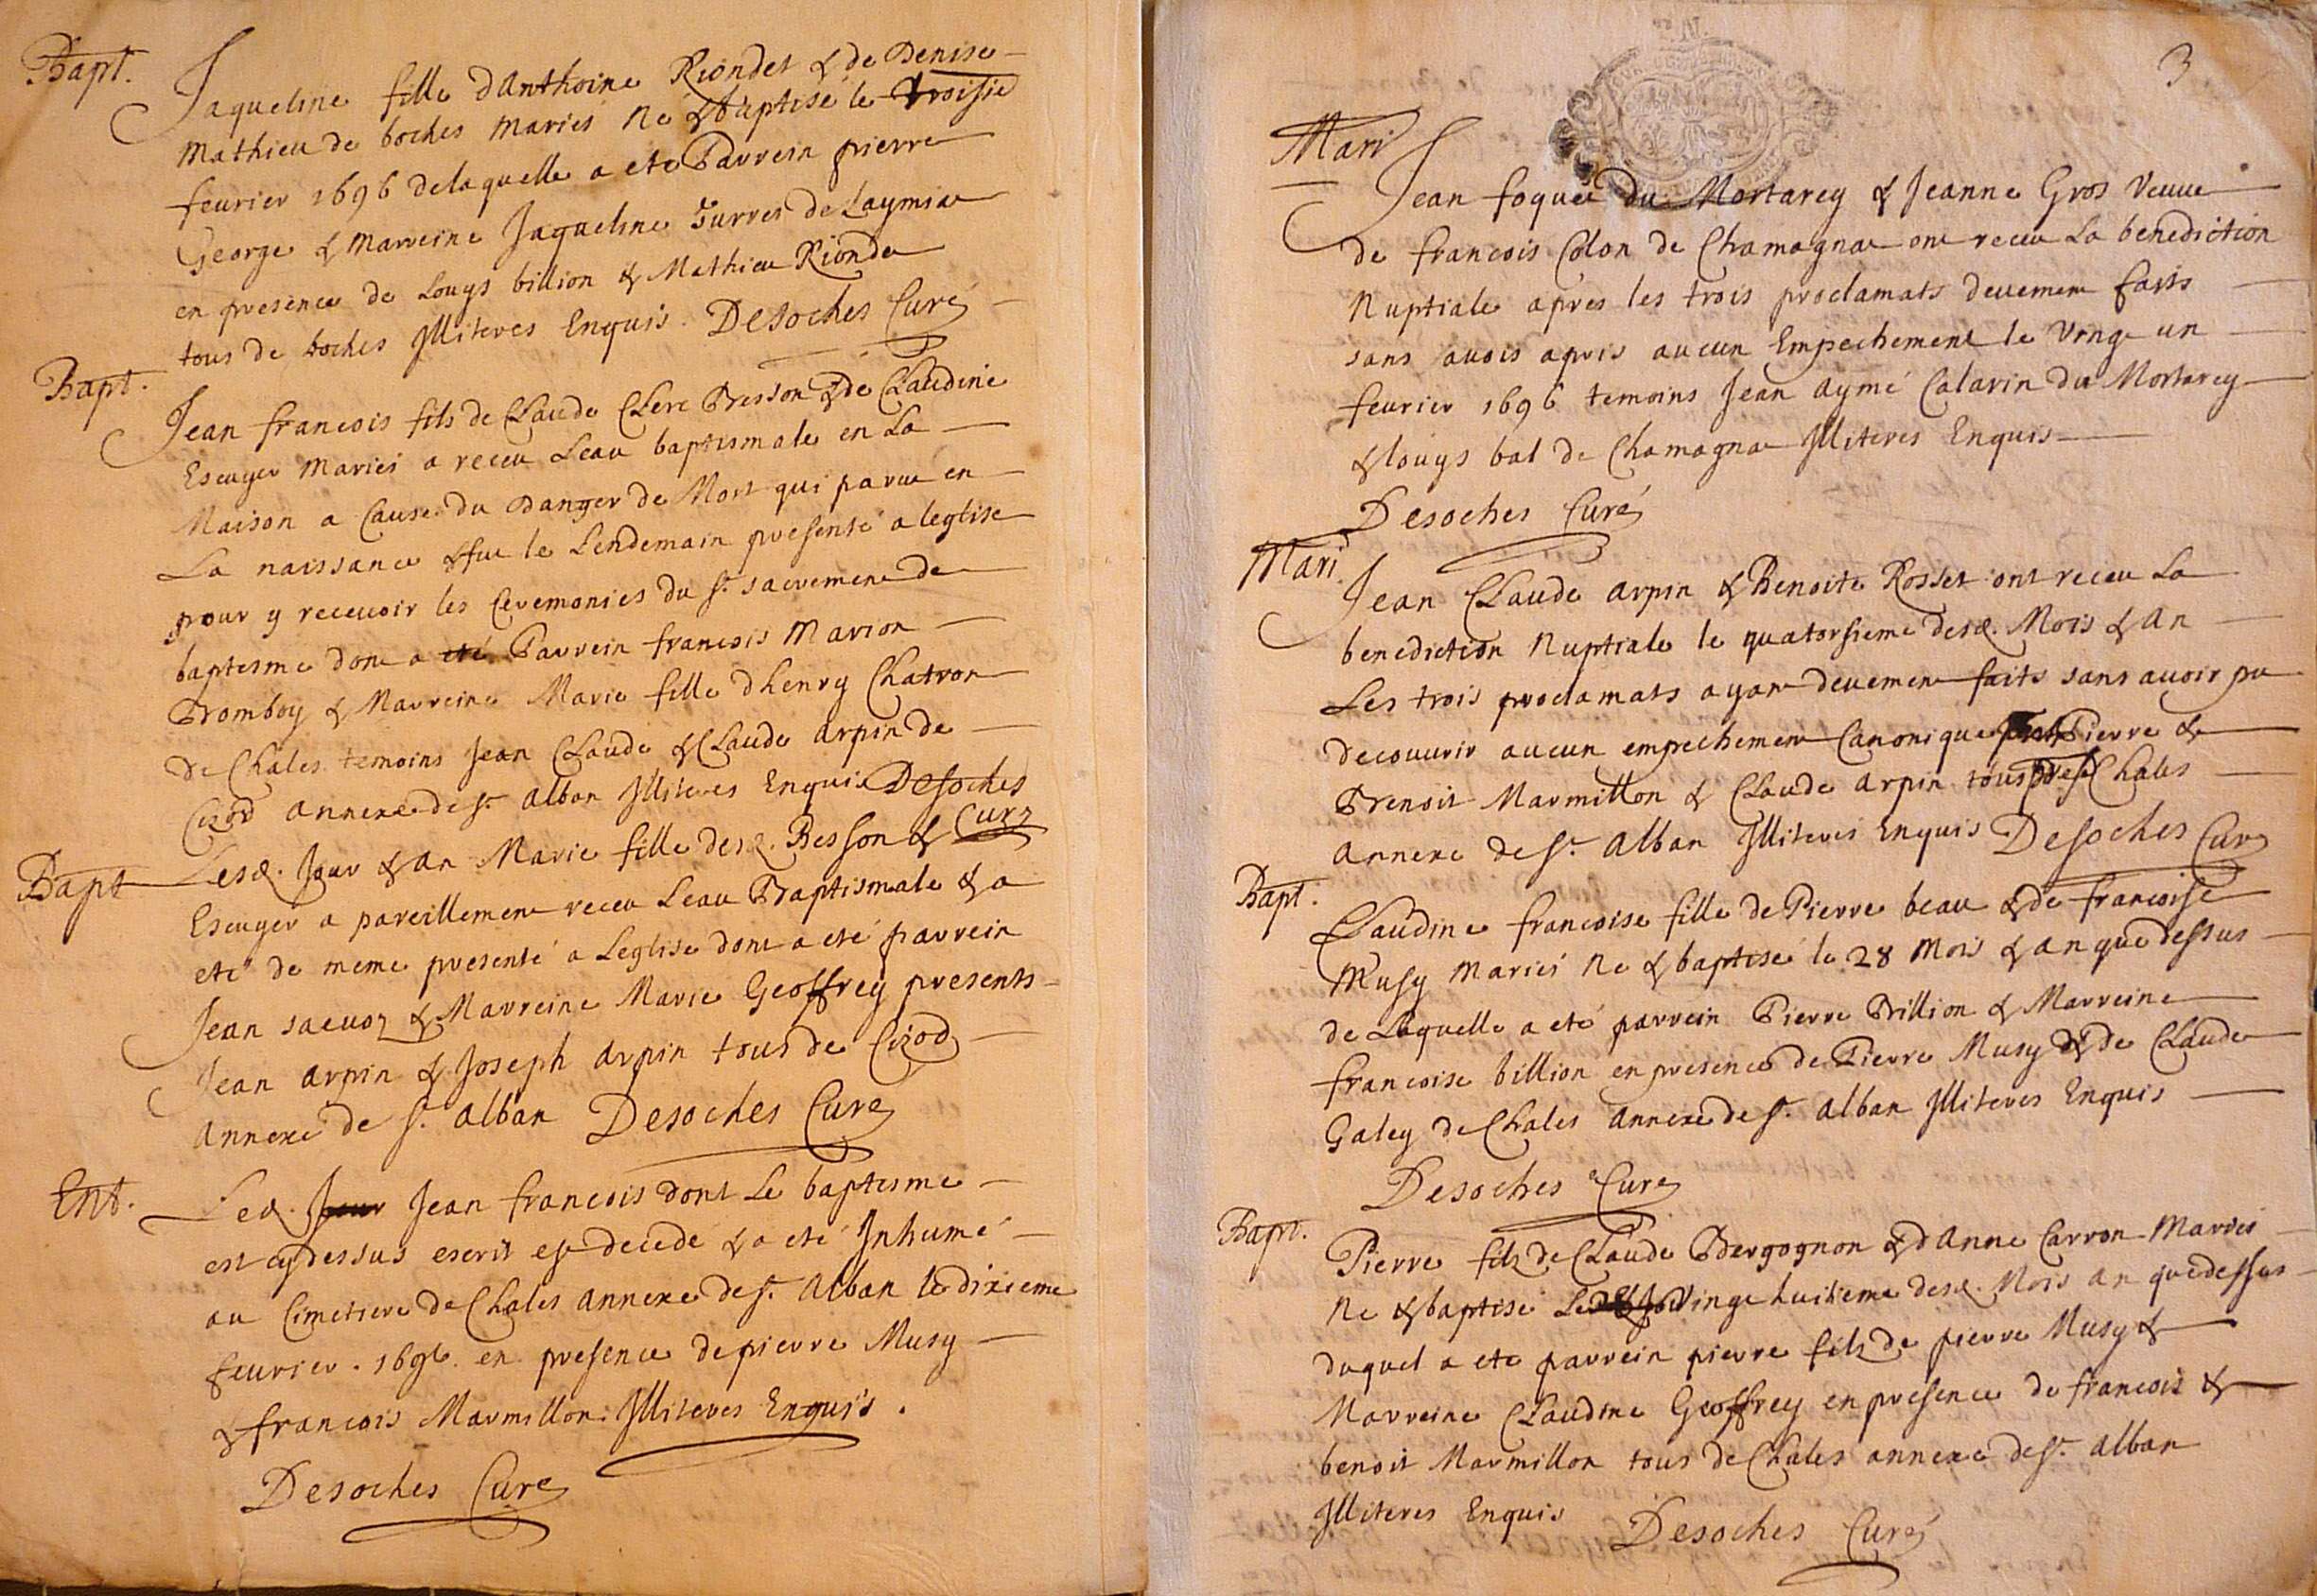 Bapt.
Jaqueline fille dAnthoine Riondet & de Denise
Mathieu de boches mariés Né & baptisé le troisie
feurier 1696 delaquelle a ete Parrein pierre
George & marreine Jaqueline Gurres de Laymiae
en presence de Louys billion & Mathieu Rionde
tous de boches Illiteres Enquis. Desoches Curé
Bapt.
Jean francois fils de Claude Clere Besson & de Claudine
Escuyer mariés a receu Leau baptismale en La
Maison a Cause du Danger de Mort qui parut en
La naissance & fut le Lendemain presenté a leglise
pour y receuoir les Ceremonies du st. sacrement de
baptesme dont a eté Parrein francois Marion
Bromboy & Marreine Marie fille dhenry Chatron
de Chales temoins Jean Claude & Claude arpin de
Cizod annexe de st. alban Illiteres Enquis Desoches
Curé
Bapt
Lesd. Jour & an Marie fille desd. Besson &
Escuyer a pareillement receu Leau Baptismale & a
eté de meme presenté a Leglise dont a eté parrein
Jean sacuoz & Marreine Marie Geoffrey presents
Jean arpin & Joseph arpin tous de Cizod
annexe de st. alban Desoches Curé
Ent.
Led. Jour Jean francois dont Le baptesme
est cydessus escrit est decedé & a eté Inhumé
au Cimetiere de Chales annexe de st. alban le dixieme
feurier. 1696. en presence de pierre Musy
& francois Marmillon. Illiteres Enquis.
Desoches Curé
3
Mari
Jean foquet du Mortarey & Jeanne Gros Veuue
de francois Colon de Chamagnae ont receu La benediction
Nuptiale apres les trois proclamats deuement faits
sans auois apris aucun Empechement le Vingt un
feurier 1696 temoins Jean aymé Calarin du Mortarey
& louys bal de Chamagnae Illiteres Enquis
Desoches Curé
Mari.
Jean Claude arpin & Benoite Rosset ont receu La
benediction Nuptiale le quatorsieme desd. Mois & an
Les trois proclamats ayant deuement faits sans auoir pu
decouurir aucun empechement Canonique Pierre &
Benoit Marmillon & Claude arpin tous de Chales
annexe de st. alban Illiteres Enquis Desoches Curé
Bapt.
Claudine francoise fille de Pierre beau & de francoise
Musy mariés Né & baptisé le 28 mois & an que dessus
de Laquelle a eté parrein Pierre Billion & Marreine
francoise billion en presence de Pierre Musy & de Claude
Galey de Chales annexe de st. alban Illiteres Enquis
Desoches Curé
Bapt.
Pierre fils de Claude Bergognon & dAnne Carron Mariés
Né & baptisé Le Vingt huitieme desd. Mois an quedessus
duquel a ete parrein pierre fils de pierre Musy &
Marreine Claudine Geoffrey en presence de francois &
benoit Marmillon tous de Chales annexe de st. alban
Illiteres Enquis Desoches Curé